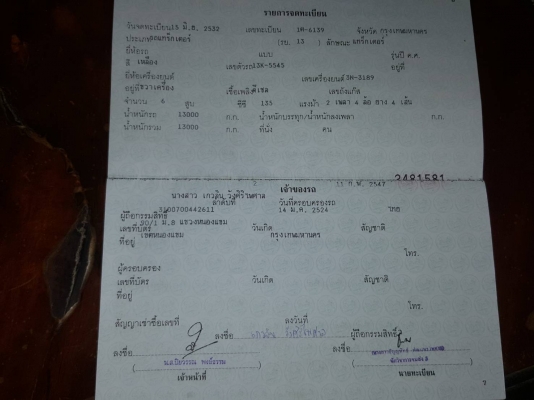 รายการจดทะเบียน
วันจดทะเบียน15 มิ.ย. 2532 เลขทะเบียน 1ค-6139 จังหวัด กรุงเทพมหานคร
ประเภทรถแทร็กเตอร์ (รย. 13 ) ลักษณะ แทร็กเตอร์
ยี่ห้อรถ แบบ รุ่นปี ค.ศ.
สี เหลือง เลขตัวรถ13K-5545 อยู่ที่
ยี่ห้อเครื่องยนต์ เลขเครื่องยนต์
อยู่ที่ขวาเครื่อง เชื้อเพลิงดีเซล เลขถังแก๊ส
จำนวน 4 สูบ ซีซี 135 แรงม้า 2 เพลา 4 ล้อ ยาง 4 เส้น
น้ำหนักรถ 13000 ก.ก. น้ำหนักบรรทุก/น้ำหนักลงเพลา ก.ก.
น้ำหนักรวม 13000 ก.ก. ที่นั่ง คน
2
11 ก.พ. 2547 3481581
เจ้าของรถ
นางสาว
ลำดับที่ วันที่ครอบครองรถ
3100700442611 14 ม.ค. 2524 ไทย
ผู้ถือกรรมสิทธิ์
เลขที่บัตร 90/1 ม.8 แขวงหนองแขม วันเกิด สัญชาติ
ที่อยู่ เขตหนองแขม กรุงเทพมหานคร
โทร.
ผู้ครอบครอง
เลขที่บัตร วันเกิด สัญชาติ
ที่อยู่
โทร.
สัญญาเช่าซื้อเลขที่ ลงวันที่
ลงชื่อ ผู้ถือกรรมสิทธิ์
ลงชื่อ ลงชื่อ
เจ้าหน้าที่ นายทะเบียน